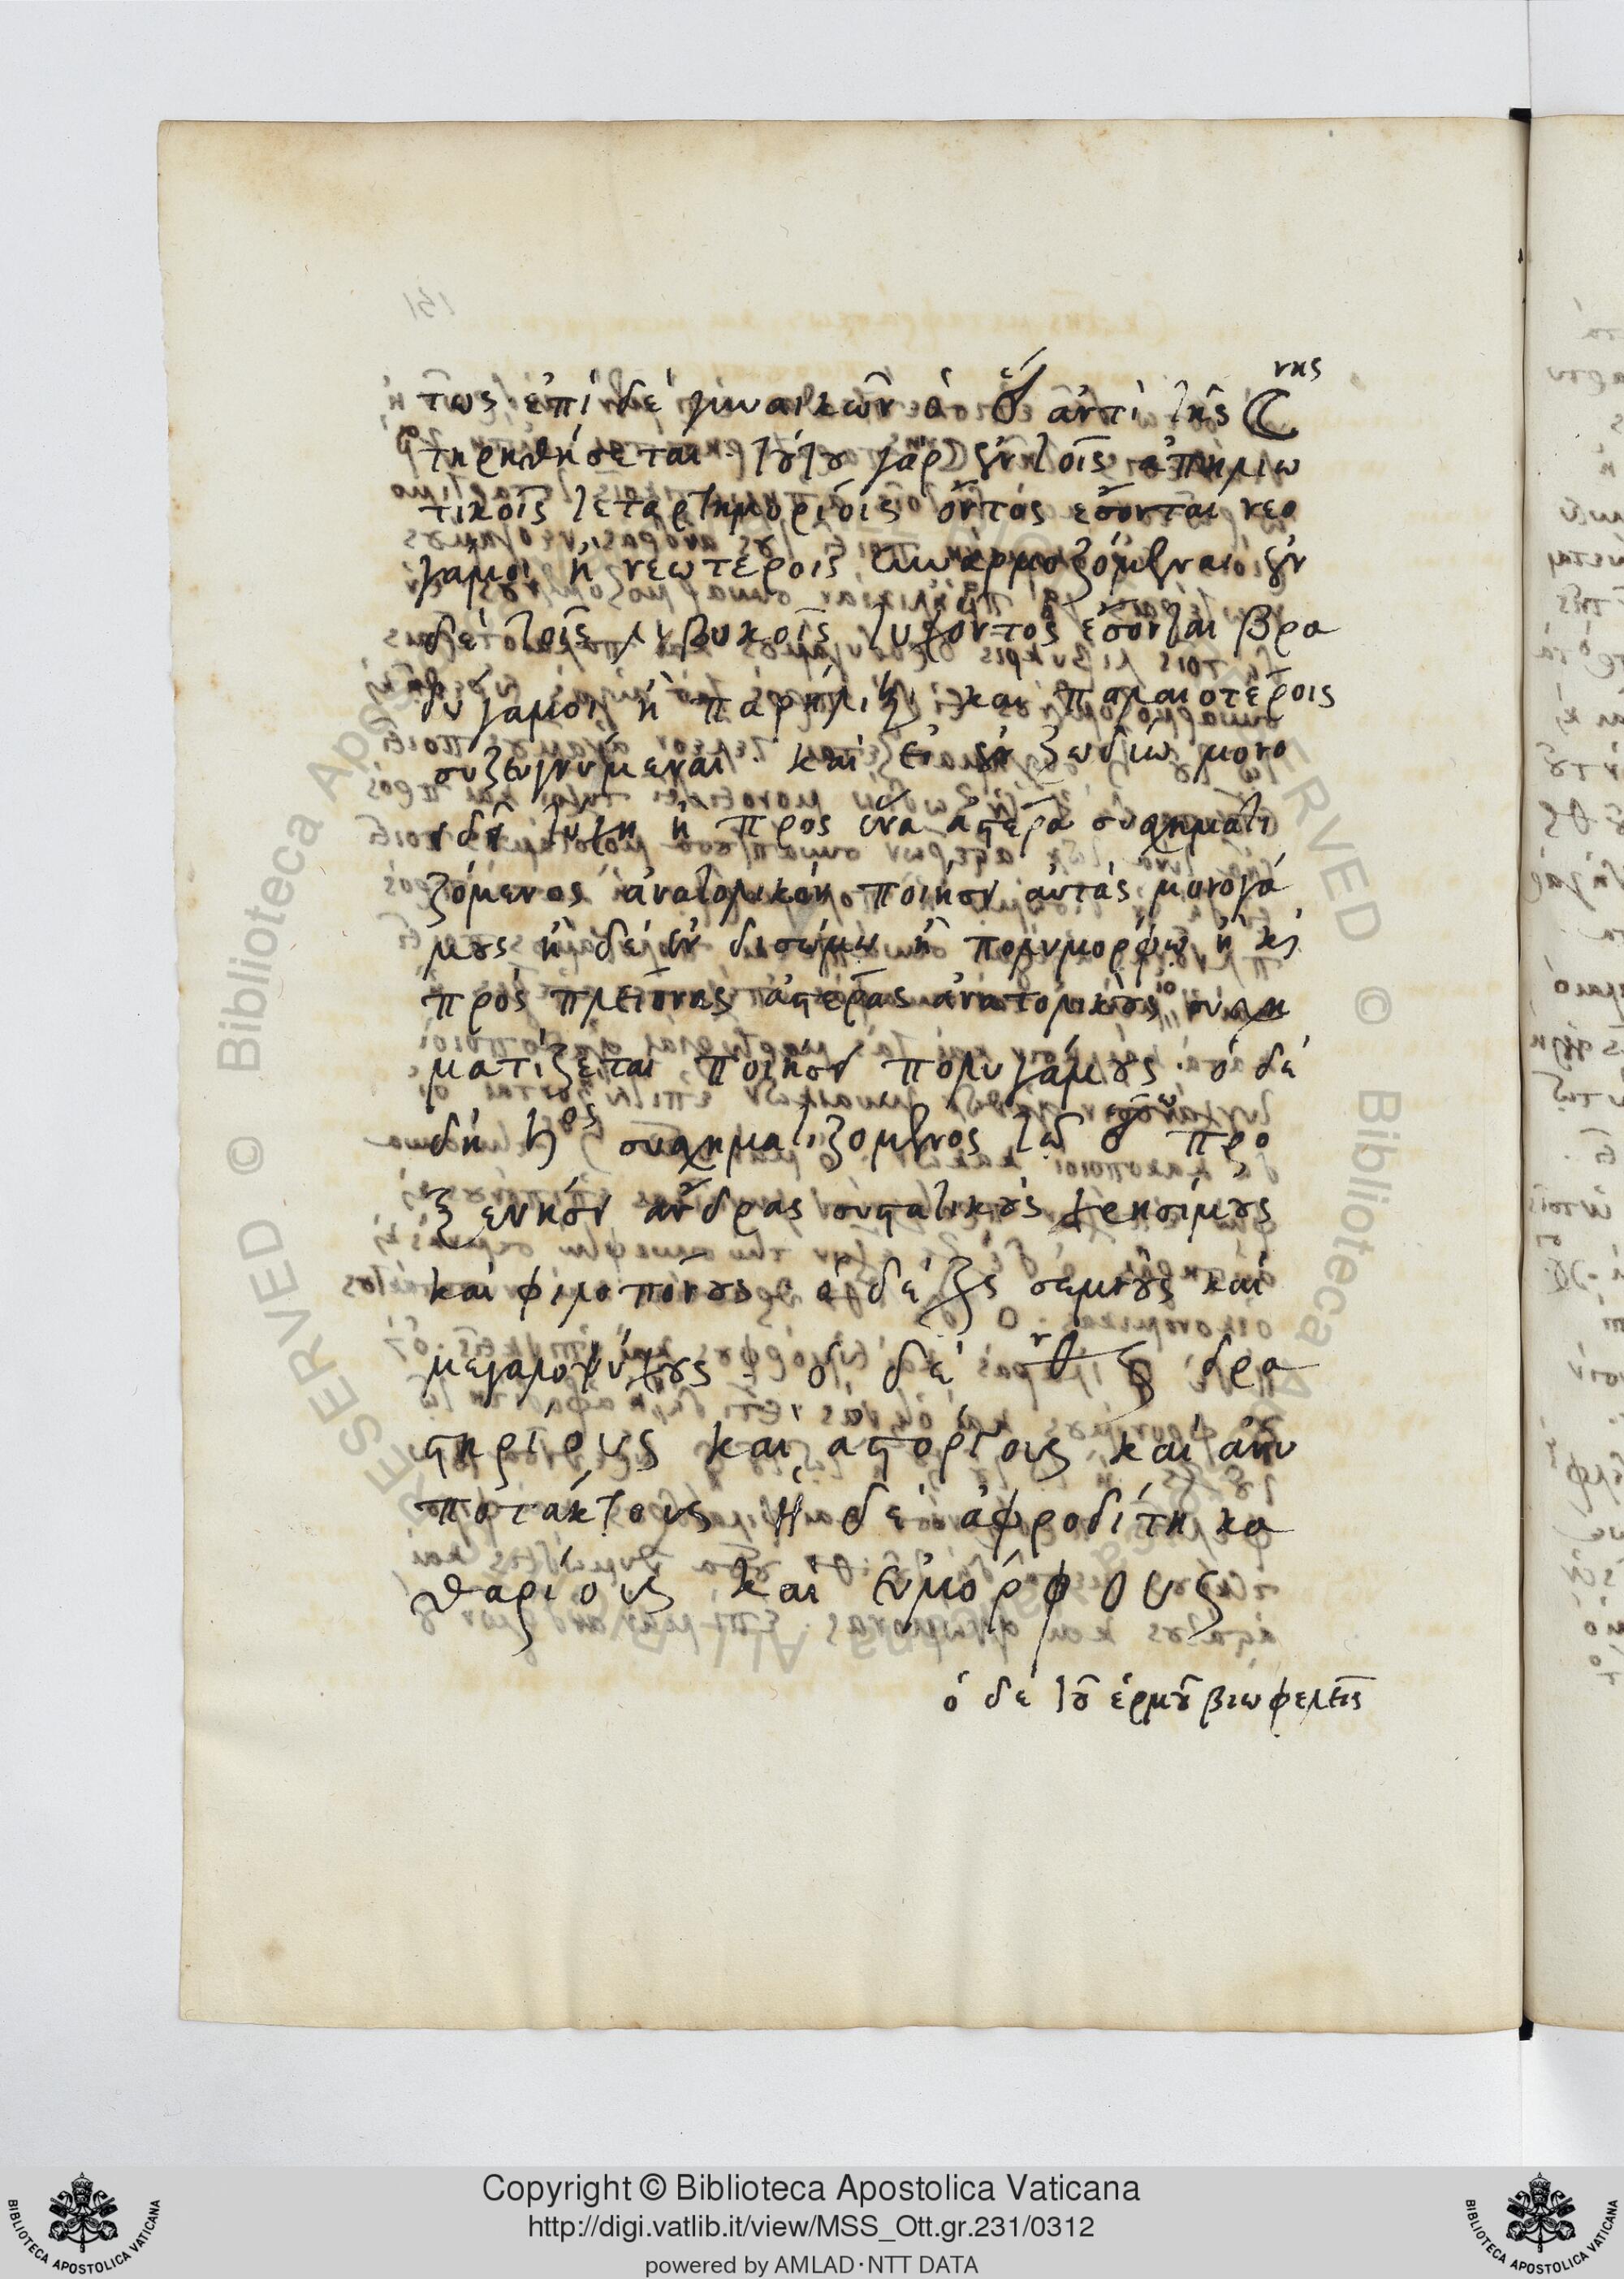 τως ἐπὶ δὲ γυναικῶν ὁ ☉ ἀντὶ τῆς ☾νης
τηρηθήσεται· τούτου γὰρ ἐν τοῖς ἀπηλιω
τικοῖς τεταρτημορίοις ὄντος ἔσονται νεο
γαμοι ἢ νεωτέροις συναρμοζόμεναι ἐν
δὲ τοῖς λιβυκοῖς τυχόντος ἔσονται βρα
δυγαμοι ἢ παρήλικι καὶ παλαιοτέροις
συζευγνύμεναι· καὶ εἰ ἐν ζωδίω μονο
ειδῆ τύχη ἢ πρὸς ἕνα ἀστέρα συσχηματι
ζόμενος ἀνατολικὸν ποιήσει αὐτὰς μονογά
μους ἢ δὲ ἐν δισώμω ἢ πολυμόρφω ἢ κὶ
πρὸς πλείονας ἀστέρας ἀνατολικοὺς συσχη
ματίζεται ποιήσει πολυγάμους· ὁ δὲ
δὴ ♄ος συσχηματιζόμενος τῶ ☉ προ
ξενήσει ἄνδρας συστατικοὺς χρησίμους
καὶ φιλοπόνους· ὁ δὲ ζς σεμνοὺς καὶ
μεγαλοψύχους· ὁ δὲ δρα
στηρίους καὶ ἀστόργους καὶ ἀνυ
ποτάκτους ἡ δὲ ἀφροδίτη κα
θαρίους καὶ εὐμόρφους
ὁ δὲ τοῦ ἑρμοῦ βιωφελεῖς
Copyright © Biblioteca Apostolica Vaticana
http://digi.vatlib.it/view/MSS_Ott.gr.231/0312
powered by AMLAD·NTT DATA
BIBLIOTECA APOSTOLICA VATICANA
BIBLIOTECA APOSTOLICA VATICANA